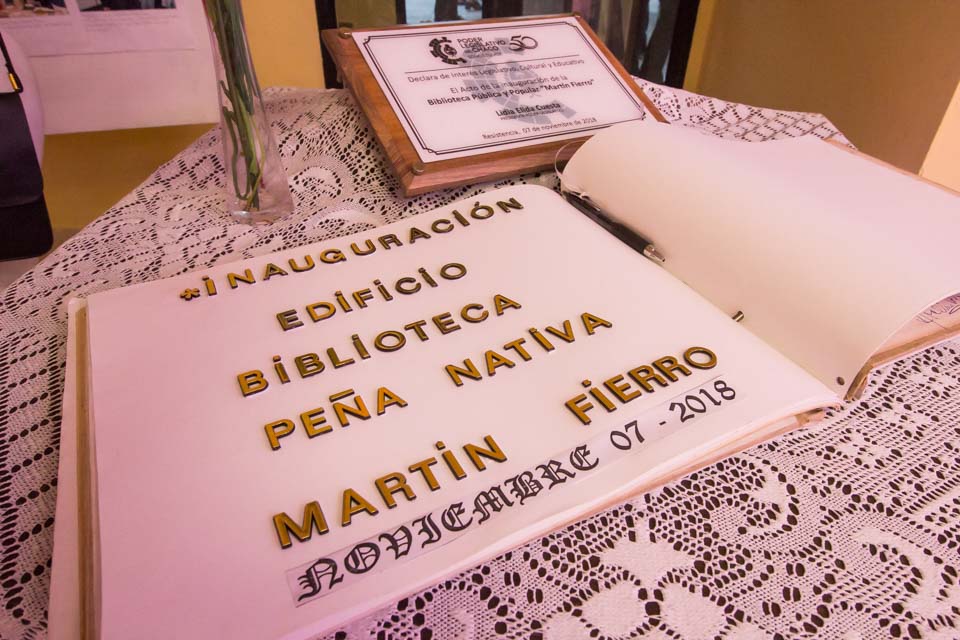 PODER
LEGISLATIVO
DEL CHACO
50
Declara de Interés Legislativo, Cultural y Educativo
El Acto de la inauguración de la
Biblioteca Pública y Popular "Martín Fierro"
Lidia Elida Cuesta
Resistencia, 07 de noviembre de 2018
*iNAUGURACIÓN
EDiFiCiO
BiBLiOTECA
PEÑA NATiVA
MARTiN FiERRO
NOVIEMBRE 07 - 2018